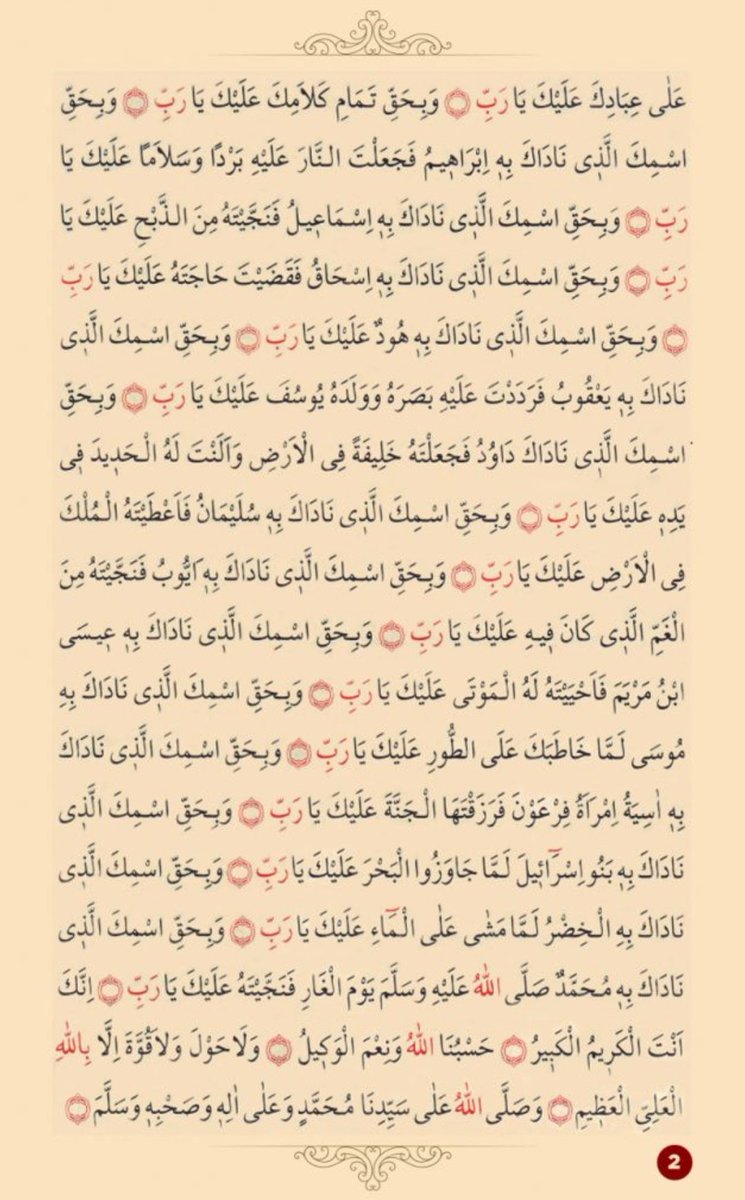 عَلٰى عِبَادِكَ عَلَيْكَ يَا رَبِّ ۝ وَبِحَقِّ تَمَامِ كَلَامِكَ عَلَيْكَ يَا رَبِّ ۝ وَبِحَقِّ
اسْمِكَ الَّذ۪ى نَادَاكَ بِه۪ اِبْرَاه۪يمُ فَجَعَلْتَ النَّارَ عَلَيْهِ بَرْدًا وَسَلَامًا عَلَيْكَ يَا
رَبِّ ۝ وَبِحَقِّ اسْمِكَ الَّذ۪ى نَادَاكَ بِه۪ اِسْمَاع۪يلُ فَنَجَّيْتَهُ مِنَ الذَّبْحِ عَلَيْكَ يَا
رَبِّ ۝ وَبِحَقِّ اسْمِكَ الَّذ۪ى نَادَاكَ بِه۪ اِسْحَاقُ فَقَضَيْتَ حَاجَتَهُ عَلَيْكَ يَا رَبِّ
۝ وَبِحَقِّ اسْمِكَ الَّذ۪ى نَادَاكَ بِه۪ هُودٌ عَلَيْكَ يَا رَبِّ ۝ وَبِحَقِّ اسْمِكَ الَّذ۪ى
نَادَاكَ بِه۪ يَعْقُوبُ فَرَدَدْتَ عَلَيْهِ بَصَرَهُ وَوَلَدَهُ يُوسُفَ عَلَيْكَ يَا رَبِّ ۝ وَبِحَقِّ
اسْمِكَ الَّذ۪ى نَادَاكَ دَاوُدُ فَجَعَلْتَهُ خَلِيفَةً فِى الْاَرْضِ وَاَلَنْتَ لَهُ الْحَد۪يدَ ف۪ى
يَدِه۪ عَلَيْكَ يَا رَبِّ ۝ وَبِحَقِّ اسْمِكَ الَّذ۪ى نَادَاكَ بِه۪ سُلَيْمَانُ فَاَعْطَيْتَهُ الْمُلْكَ
فِى الْاَرْضِ عَلَيْكَ يَا رَبِّ ۝ وَبِحَقِّ اسْمِكَ الَّذ۪ى نَادَاكَ بِه۪ اَيُّوبُ فَنَجَّيْتَهُ مِنَ
الْغَمِّ الَّذ۪ى كَانَ ف۪يهِ عَلَيْكَ يَا رَبِّ ۝ وَبِحَقِّ اسْمِكَ الَّذ۪ى نَادَاكَ بِه۪ ع۪يسَى
ابْنُ مَرْيَمَ فَاَحْيَيْتَهُ لَهُ الْمَوْتَى عَلَيْكَ يَا رَبِّ ۝ وَبِحَقِّ اسْمِكَ الَّذ۪ى نَادَاكَ بِهِ
مُوسَى لَمَّا خَاطَبَكَ عَلَى الطُّورِ عَلَيْكَ يَا رَبِّ ۝ وَبِحَقِّ اسْمِكَ الَّذ۪ى نَادَاكَ
بِه۪ اٰسِيَةُ اِمْرَاَةُ فِرْعَوْنَ فَرَزَقْتَهَا الْجَنَّةَ عَلَيْكَ يَا رَبِّ ۝ وَبِحَقِّ اسْمِكَ الَّذ۪ى
نَادَاكَ بِه۪ بَنُو اِسْرَٓائ۪يلَ لَمَّا جَاوَزُوا الْبَحْرَ عَلَيْكَ يَا رَبِّ ۝ وَبِحَقِّ اسْمِكَ الَّذ۪ى
نَادَاكَ بِهِ الْخِضْرُ لَمَّا مَشٰى عَلَى الْمَٓاءِ عَلَيْكَ يَا رَبِّ ۝ وَبِحَقِّ اسْمِكَ الَّذ۪ى
نَادَاكَ بِه۪ مُحَمَّدٌ صَلَّى اللهُ عَلَيْهِ وَسَلَّمَ يَوْمَ الْغَارِ فَنَجَّيْتَهُ عَلَيْكَ يَا رَبِّ ۝ اِنَّكَ
اَنْتَ الْكَر۪يمُ الْكَب۪يرُ ۝ حَسْبُنَا اللهُ وَنِعْمَ الْوَك۪يلُ ۝ وَلَا حَوْلَ وَلَا قُوَّةَ اِلَّا بِاللهِ
الْعَلِىِّ الْعَظ۪يمِ ۝ وَصَلَّى اللهُ عَلٰى سَيِّدِنَا مُحَمَّدٍ وَعَلٰى اٰلِه۪ وَصَحْبِه۪ وَسَلَّمَ ۝
2